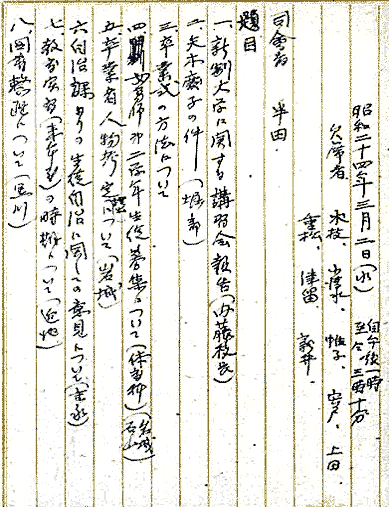 昭和二十四年三月二日(水) 自午後一時 至仝三時十分
欠席者 水枝、清水、帷子、宍戸、上田
重松、津留、新井、
司会者 半田、
題目
一、新制大学に関する講習会報告(内藤校長)
二、矢木慶子の件(堀部)
三、卒業式の方法について
四、師第二学年生徒募集について(佐曽神)(岩城 石山)
五、卒業者人物考定について(岩城)
六、自治課よりの生徒自治に関しての意見について(吉永)
七、教育実習(来年度)の時期について(近地)
八、図書整理について(黒川)